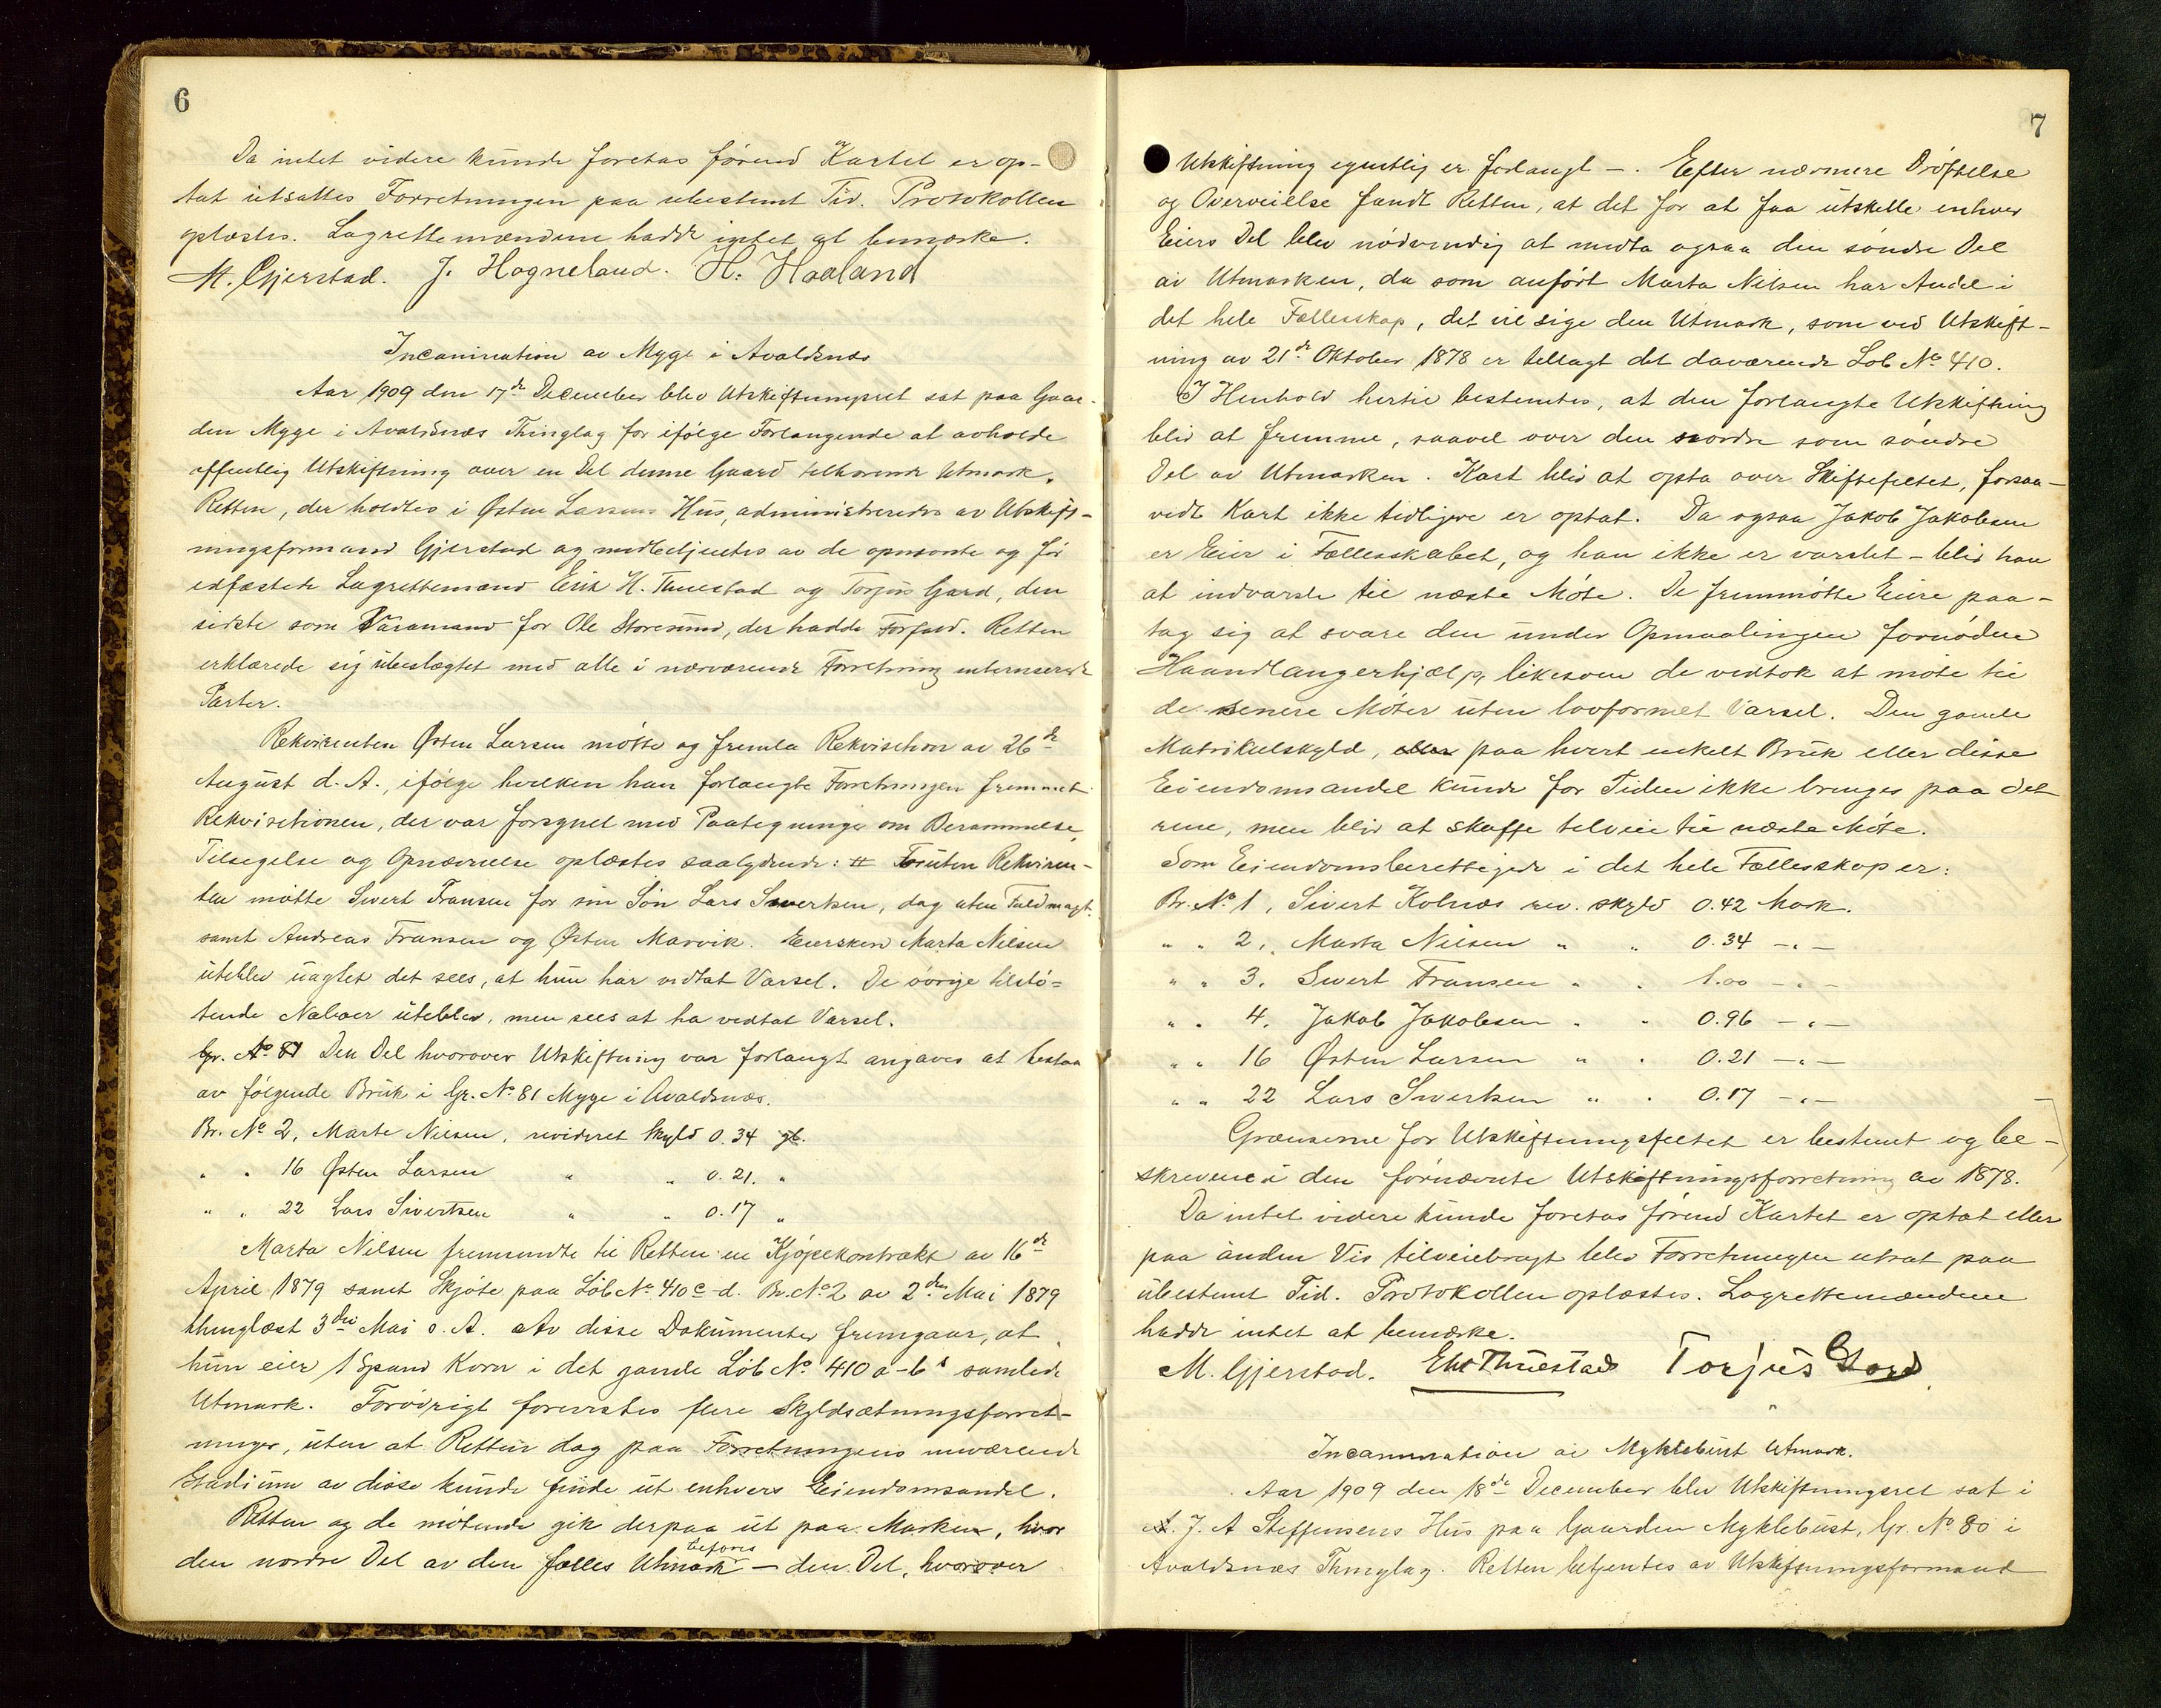 6
Da intet videre kunde foretas førend Kartet er op-
tat utsattes Forretningen paa ubestemt Tid. Protokollen
oplæstes. Lagrettemændene hadde intet at bemærke.
M. Gjerstad. J. Hagneland. H. Haaland
Incamination av Myge i Avaldsnæs
Aar 1909 den 17de December blev Utskiftningsret sat paa Gaar-
den Myge i Avaldsnæs Thinglag for ifølge Forlangende at avholde
offentlig Utskiftning over en Del denne Gaard tilhørende Utmark.
Retten, der holdtes i Østen Larsens Hus, administreredes av Utskift-
ningsformand Gjerstad og medbetjentes av de opnævnte og før
edfæstede Lagrettemænd Erik H. Thuestad og Torjus Gard, den
sidste som Varamand for Ole Storesund, der hadde Forfald. Retten
erklærede sig ubeslægtet med alle i nærværende Forretning interesserede
Parter.
Rekvirenten Østen Larsen møtte og fremla Rekvisition av 26de
August d. A., ifølge hvilken han forlangte Forretningen fremmet
Rekvisitionen, der var forsynet med Paategninger om Berammelse,
Tilsigelse og Opnævnelse oplæstes saalydende: # Foruten Rekviren-
ten møtte Sivert Fransen for sin Søn Lars Sivertsen, dog uten Fuldmagt.
samt Andreas Fransen og Østen Marvik. Eiersken Marta Nilsen
uteblev uagtet det sees, at hun har vedtat Varsel. De øvrige tilstø-
tende Naboer uteblev, men sees at ha vedtat Varsel.
Gr. No 81 Den Del hvorover Utskiftning var forlangt angaves at bestaa
av følgende Bruk i Gr. No 81 Myge i Avaldsnæs.
Br. No 2, Marte Nilsen, revideret Skyld 0.34
" " 16 Østen Larsen " " 0.21. "
" " 22 Lars Sivertsen " " 0.17 "
Marta Nilsen fremsendte til Retten en Kjøpekontrakt av 16de
April 1879 samt Skjøte paa Løb No 410 c-d. Br. No 2 av 2den Mai 1879
thinglæst 3die Mai s. A. Av disse Dokumenter fremgaar, at
hun eier 1 Spand Korn i det gamle Løb No 410 a-b's samlede
Utmark. Forøvrigt forevistes flere Skyldsætningsforret-
ninger, uten at Retten dog paa Forretningens nuværende
Stadium av disse kunde finde ut enhvers Eiendomsandel.
Retten og de møtende gik derpaa ut paa Marken, hvor
den nordre Del av den fælles Utmark befores — den Del, hvorover
7
Utskiftning egentlig er forlangt —. Efter nærmere Drøftelse
og Overveielse fandt Retten, at det for at faa utskille enhver
Eiers Del blev nødvendig at medta ogsaa den søndre Del
av Utmarken, da som anført Marta Nilsen har Andel i
det hele Fællesskap, det vil sige den Utmark, som ved Utskift-
ning av 21de Oktober 1878 er tillagt det daværende Løb No 410.
I Henhold hertil bestemtes, at den forlangte Utskiftning
blir at fremme, saavel over den nordre som søndre
Del av Utmarken. Kart blir at opta over Skiftefeltet, forsaa-
vidt Kart ikke tidligere er optat. Da ogsaa Jakob Jakobsen
er Eier i Fællesskabet, og han ikke er varslet – blir han
at indvarsle til næste Møte. De fremmøtte Eiere paa-
tog sig at svare den under Opmaalingen fornødne
Haandlangerhjælp, likesom de vedtok at møte til
de senere Møter uten lovformet Varsel. Den gamle
Matrikulskyld, paa hvert enkelt Bruk eller disse
Eiendomsandel kunde for Tiden ikke bringes paa det
rene, men blir at skaffe tilveie til næste Møte.
Som Eiendomsberettigede i det hele Fællesskap er:
Br. No 1, Sivert Kolnæs rev. skyld 0.42 Mark.
" " 2, Marta Nilsen " " 0.34 -"-
" " 3. Sivert Fransen " " 1.00 -"-
" " 4. Jakob Jakobsen " " 0.96 -"-
" " 16 Østen Larsen " " 0.21 -"-
" " 22 Lars Sivertsen " " 0.17 -"-
Grænserne for Utskiftningsfeltet er bestemt og be-
skrevene i den førnævnte Utskiftningsforretning av 1878.
Da intet videre kunde foretas førend Kartet er optat eller
paa anden Vis tilveiebragt blev Forretningen utsat paa
ubestemt Tid. Protokollen oplæstes. Lagrettemændene
hadde intet at bemærke.
M. Gjerstad. EHThuestad Torjus Gard
Incamination av Myklebust Utmark.
Aar 1909 den 18de December blev Utskiftningsret sat i
J. A Steffensens Hus paa Gaarden Myklebust, Gr. No 80 i
Avaldsnæs Thinglag. Retten betjentes av Utskiftningsformand